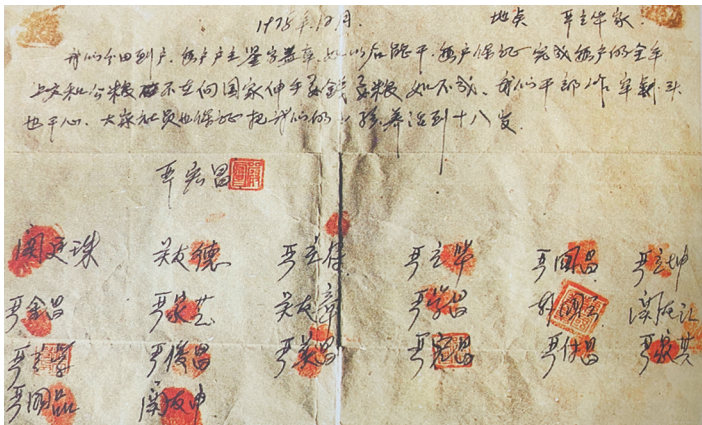 1978年12月. 地点 严立华家
我们分田到户. 每户户主签字盖章. 如以后能干. 每户保证完成每户的全年
上交和公粮. 不在向国家伸手要钱要粮. 如不成. 我们干部作牢剎头
也干心. 大家社员也保证把我们的小孩养活到十八岁.
严宏昌
关廷珠 关友德 严立符 严立华 严国昌 严立坤
严金昌 严家芝 关友章 严学昌 韩国云 关友江
严立学 严俊昌 严美昌 严宏昌 严付昌 严家其
严国品 关友申